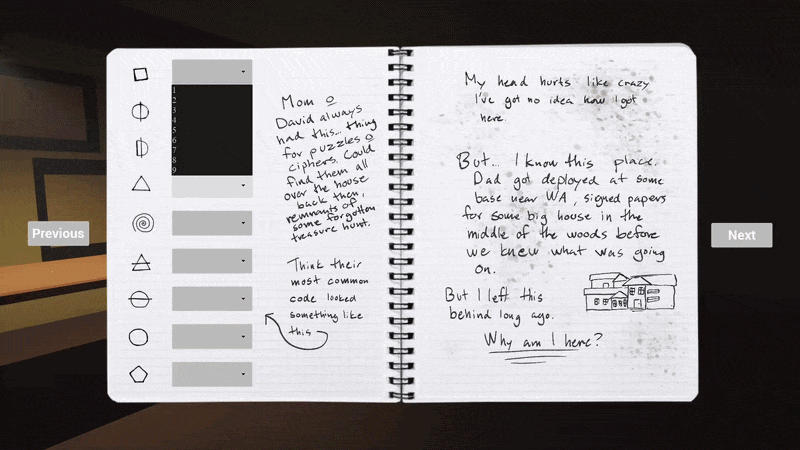 1
2
3
4
5
6
7
8
9
Mom &
David always
had this... thing
for puzzles &
ciphers. Could
find them all
over the house
back then,
remnants of
some forgotten
treasure hunt.
Think their
most common
code looked
something like
this
My head hurts like crazy
I've got no idea how I got
here.
But... I know this place.
Dad got deployed at some
base near WA, signed papers
for some big house in the
middle of the woods before
we knew what was going
on.
But I left this
behind long ago.
Why am I here?
Previous
Next